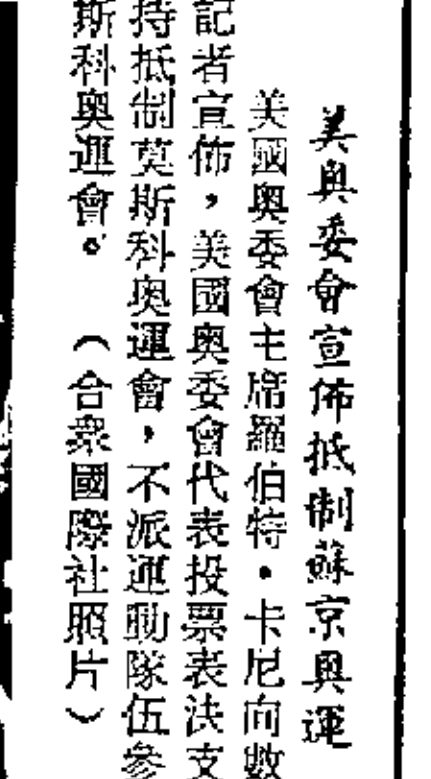 美奧委會宣佈抵制蘇京奧運
美國奧委會主席羅伯特・卡尼向數
記者宣佈，美國奧委會代表投票表決支
持抵制莫斯科奧運會，不派運動隊伍參
斯科奧運會。（合衆國際社照片）